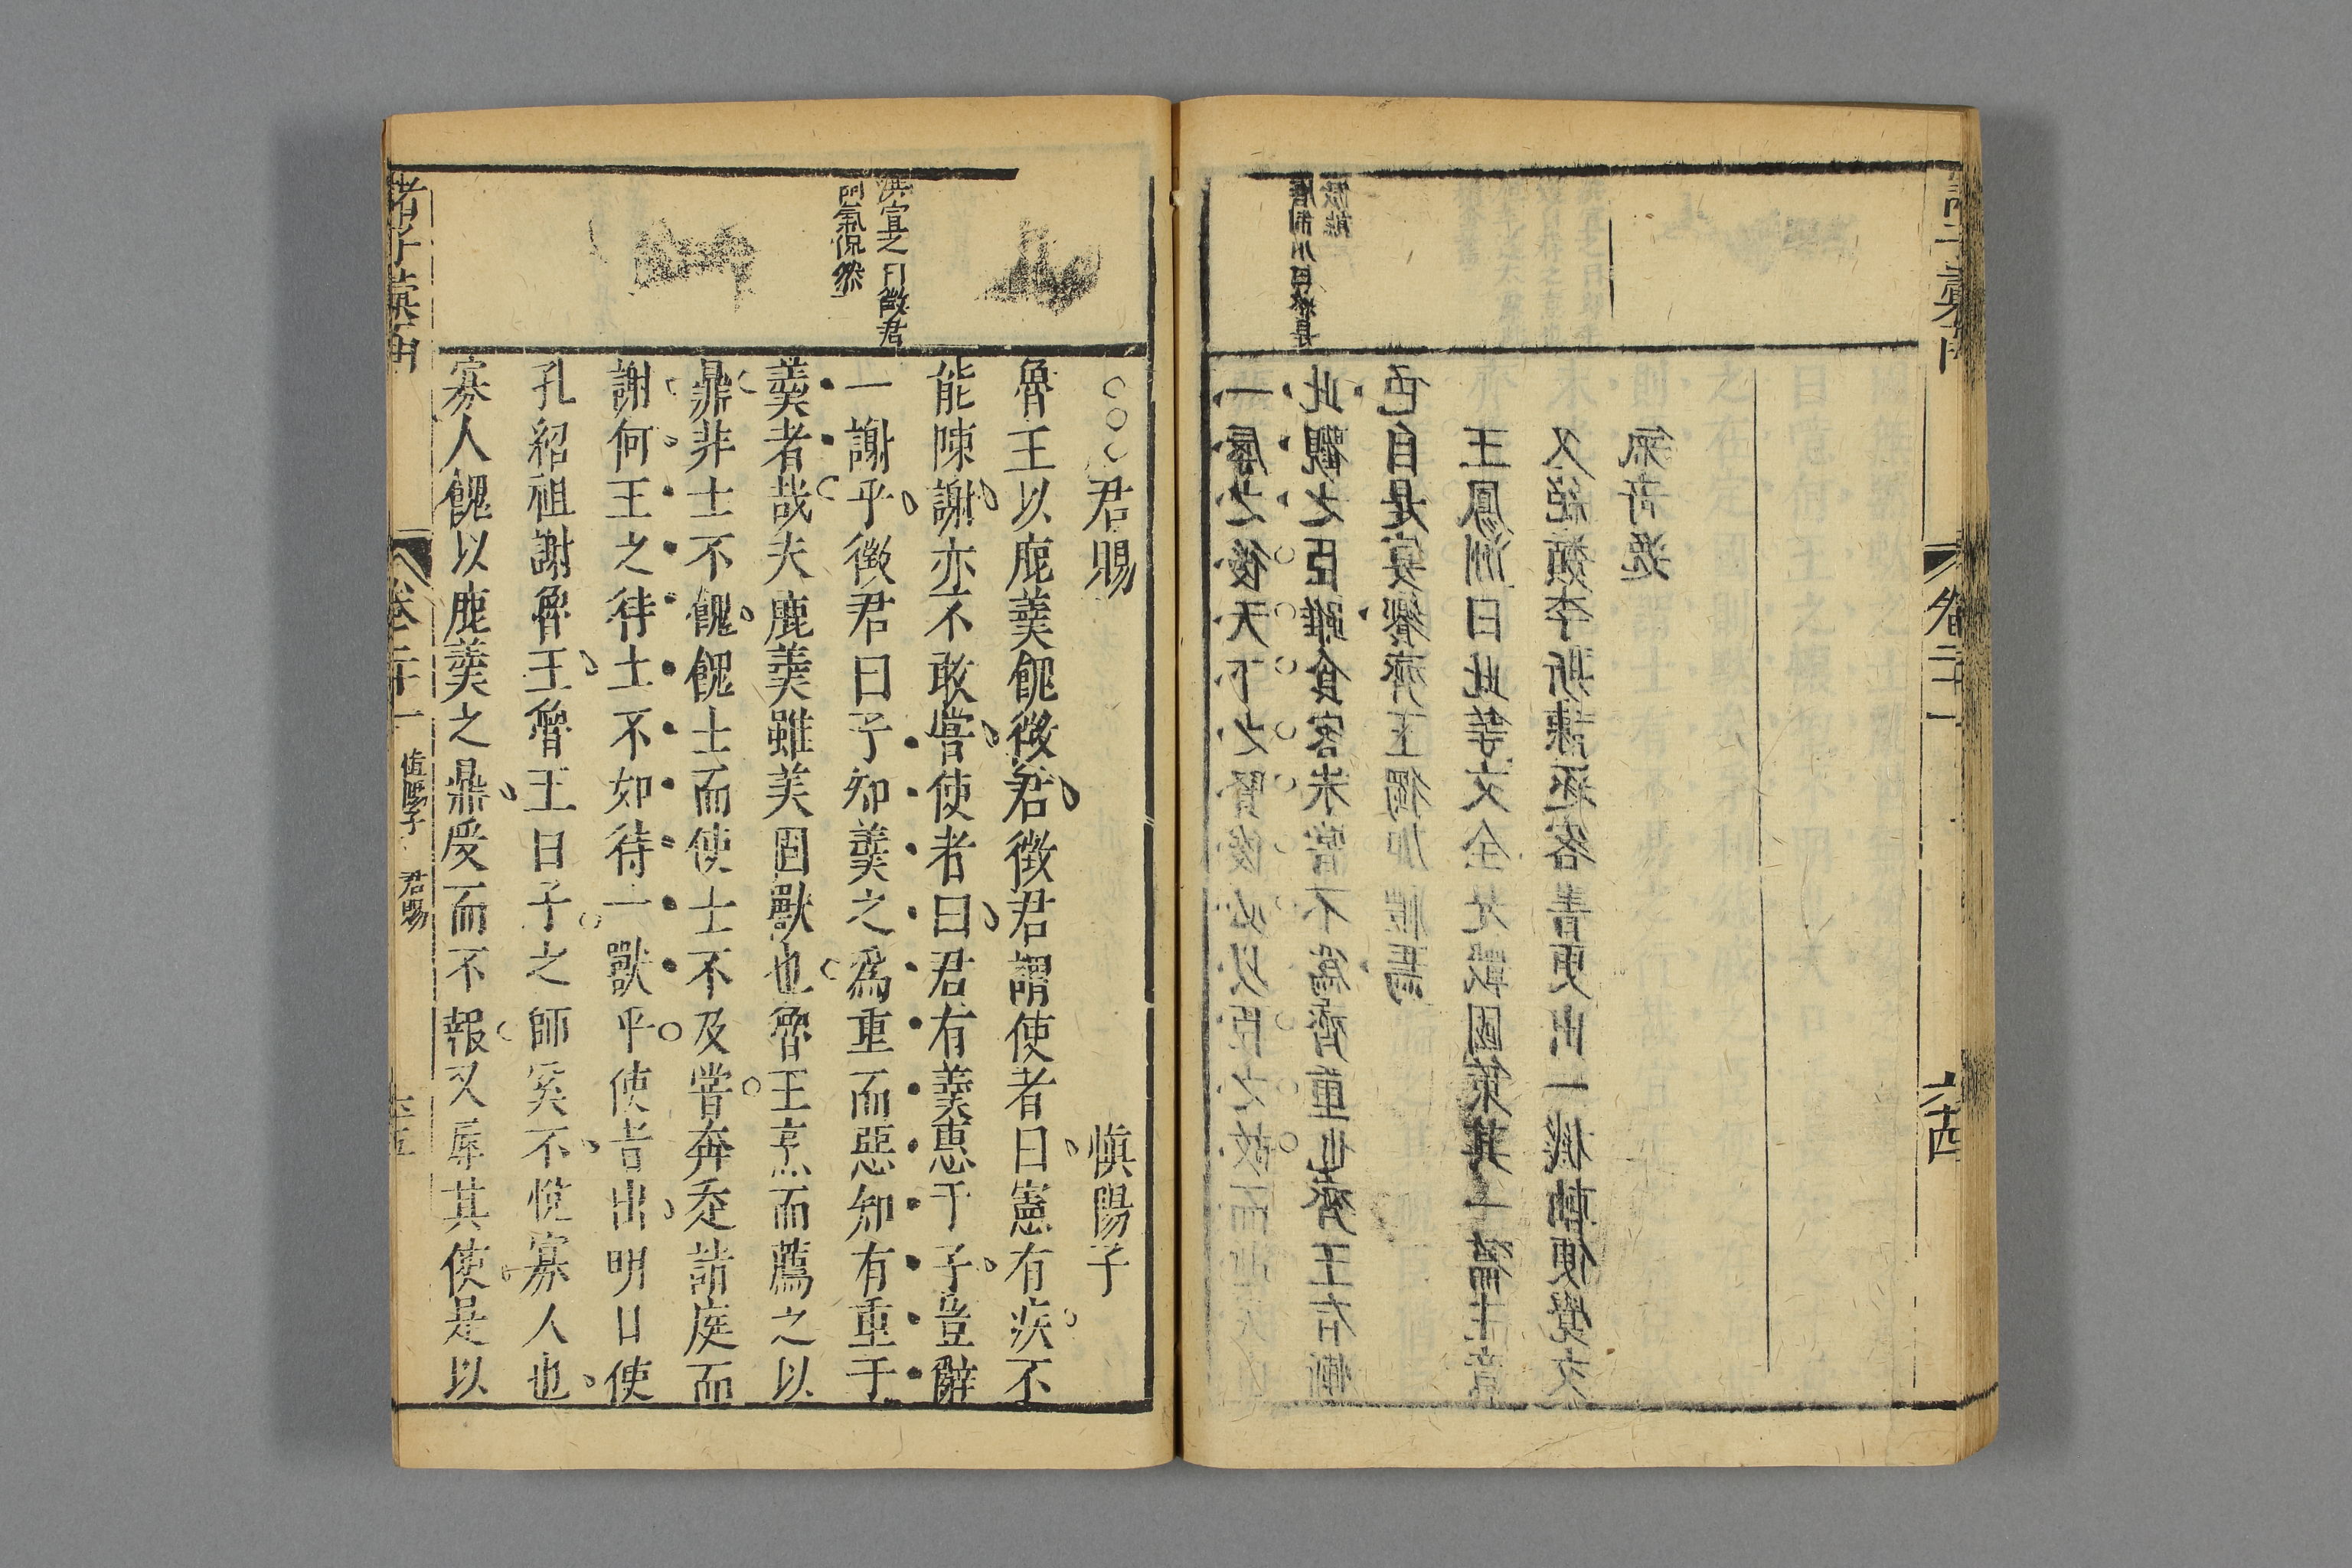 卷二十一
六十四
一辱之後天下之賢俊必以臣之故而
此觀之臣雖食客未嘗不為齊重也齊王有慚
色自是宴饗齊王獨加禮焉
王鳳洲曰此等文全是戰國策其
又絕類李斯諫逐客書更出一機軸便覺文
氣奇逸
○○○君賜
慎陽子
洪宜之曰徵君
問氣侃然
魯王以鹿羮餽徵君徵君謂使者曰憲有疾不
能陳謝亦不敢嘗使者曰君有羮惠于子豈辭
一謝乎徵君曰予知羮之為重而惡知有重于
羮者哉夫鹿羮雖美固獸也魯王烹而薦之以
鼎非士不餽餽士而使士不及嘗奔走請庭而
謝何王之待士不如待一獸乎使者出明日使
孔紹祖謝魯王魯王曰子之師奚不悅寡人也
寡人餽以鹿羮之鼎受而不報又辱其使是以
諸子彙函
卷二十一
慎陽子
君賜
六十五